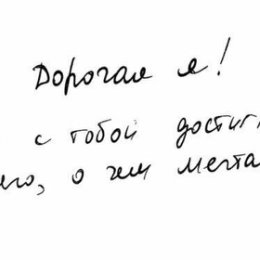 Дорогая я!
с тобой достиг
его, о чем мечта